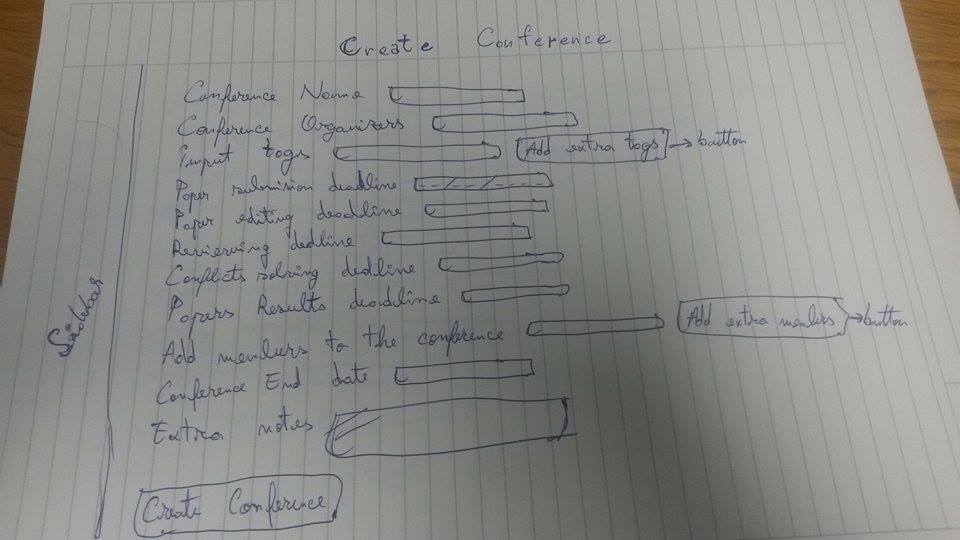 Create Conference
Conference Name
Conference Organizers
Input tags Add extra tags → button
Paper submision deadline
Paper editing deadline
Reviewing dedline
Conflicts solving dedline
Papers Results deadline
Add members to the conference Add extra members → button
Conference End date
Extra notes
Create Conference
Sidebar